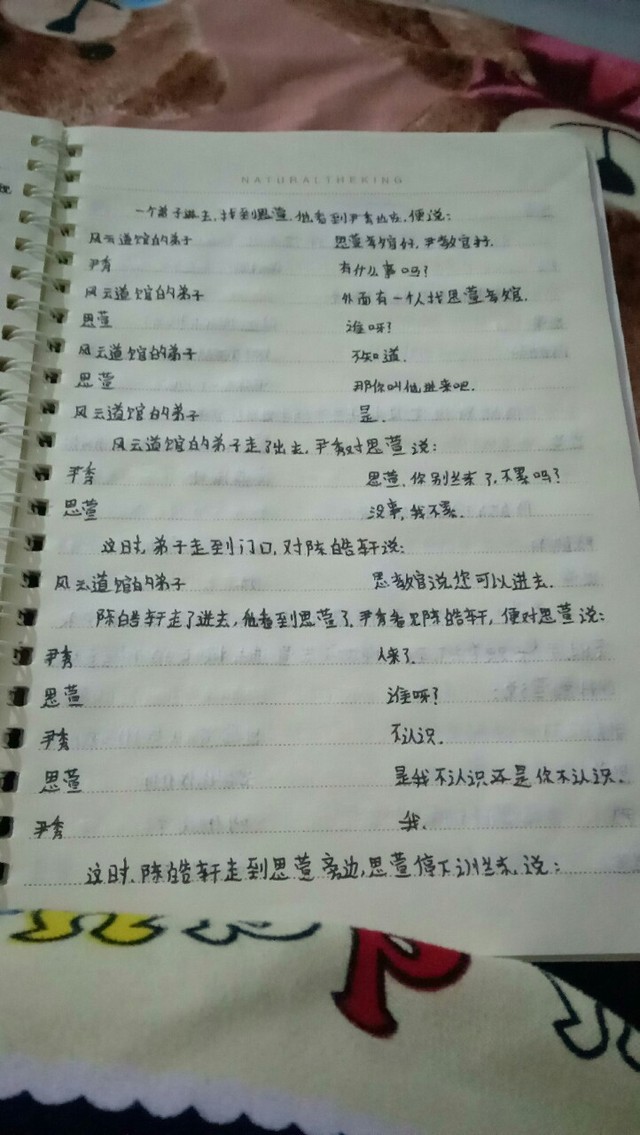 NATURALTHEKING
一个弟子进去,找到思萱,他看到尹秀也在,便说:
风云道馆的弟子 思萱教官好,尹教官好.
尹秀 有什么事吗?
风云道馆的弟子 外面有一个人找思萱教官.
思萱 谁呀?
风云道馆的弟子 不知道.
思萱 那你叫他进来吧.
风云道馆的弟子 是.
风云道馆的弟子走了出去,尹秀对思萱说:
尹秀 思萱,你别练了,不累吗?
思萱 没事,我不累.
这时,弟子走到门口,对陈皓轩说:
风云道馆的弟子 思教官说您可以进去.
陈皓轩走了进去,他看到思萱了,尹秀看见陈皓轩,便对思萱说:
尹秀 人来了.
思萱 谁呀?
尹秀 不认识.
思萱 是我不认识还是你不认识.
尹秀 我.
这时,陈皓轩走到思萱旁边,思萱停下训练,说: